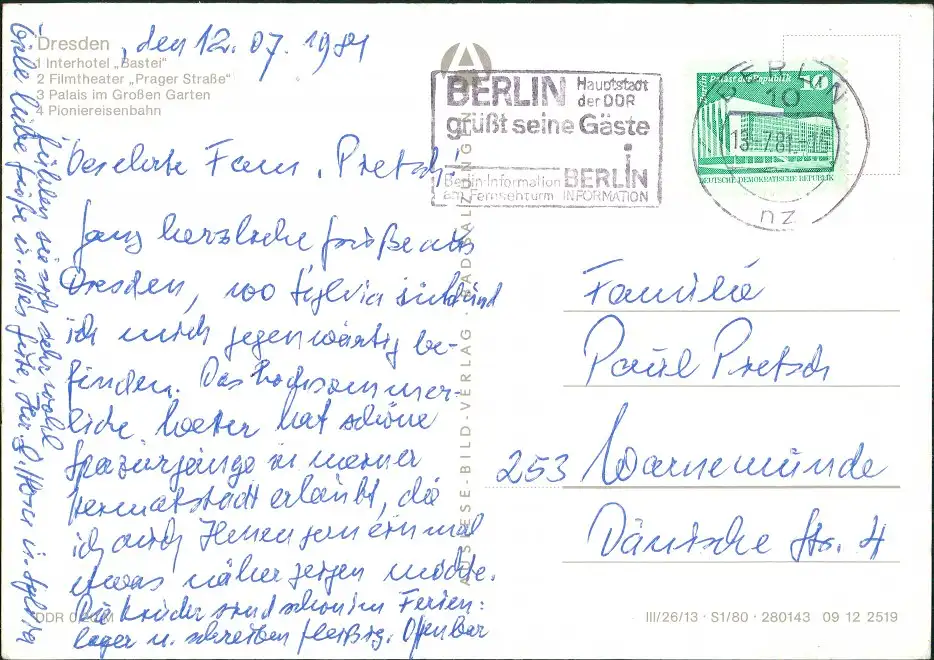 Dresden, den 12.07.1981
1 Interhotel „Bastei“
2 Filmtheater „Prager Straße“
3 Palais im Großen Garten
4 Pioniereisenbahn
Verehrte Fam. Pretsch!
Ganz herzliche Grüße aus
Dresden, wo Sylvia und
ich mich gegenwärtig be-
finden. Das hochsommer-
liche Wetter hat schöne
Spaziergänge in meiner
Heimatstadt erlaubt, die
ich auch Ihnen gern einmal
etwas näher zeigen möchte.
Die Kinder sind schon im Ferien-
lager u. schreiben fleißig. Offenbar
fühlen sie sich sehr wohl
liebe Grüße u. alles Gute, Ihr u. Sylvia
DDR 0,20 M
A
BERLIN Hauptstadt
der DDR
grüßt seine Gäste
Berlin-Information
am Fernsehturm
BERLIN
INFORMATION
Palast der Republik
10
DEUTSCHE DEMOKRATISCHE REPUBLIK
BERLIN
10
13.-7.81
nz
BILD-VERLAG · BAD SALZUNGEN
Familie
Paul Pretsch
253 Warnemünde
Dänische Str. 4
III/26/13 · S1/80 · 280143 09 12 2519